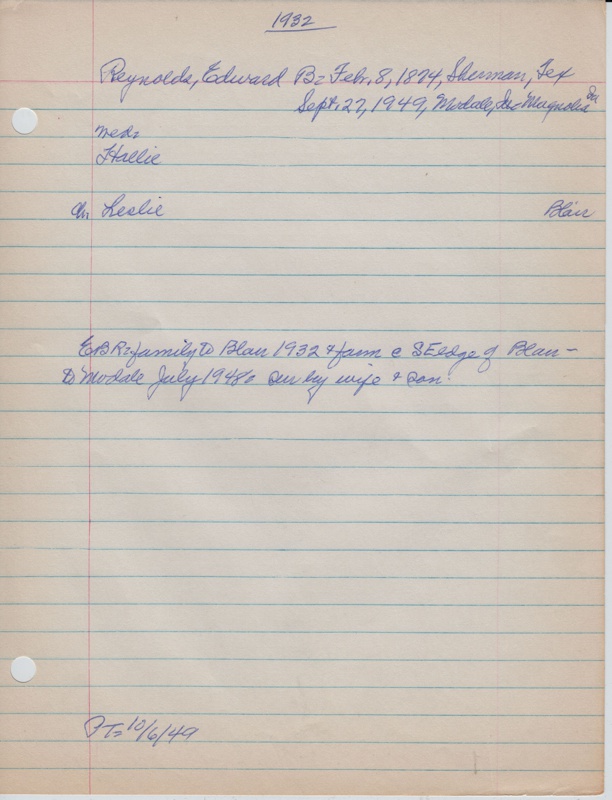 1932
Reynolds, Edward B= Febr. 8, 1874, Sherman, Tex
Sept. 27, 1949, Modale, Ia= Magnolia Ia
med=
Hallie
Ch Leslie Blair
EBR= family to Blair 1932 & farm @ SE edge of Blair –
to Modale July 1948= sur by wife & son.
PT= 10/6/49